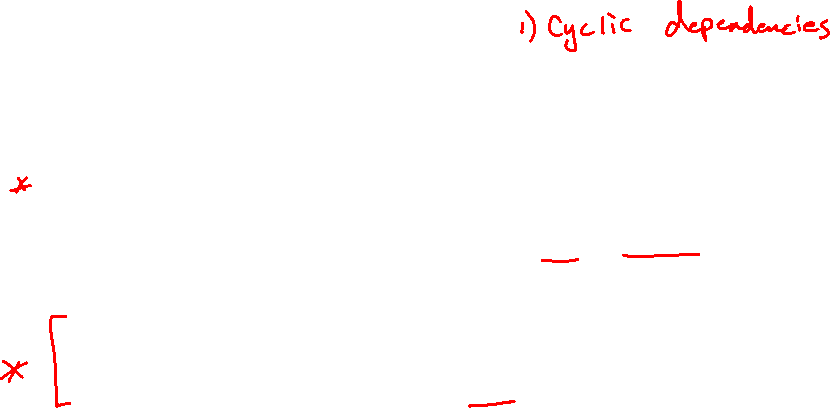 1) Cyclic dependencies
*
*